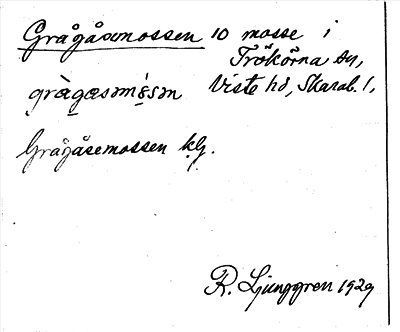 Grågåsemossen 10 mosse i
Trökörna sn,
Viste hd, Skarab. l,
gràgasəmɷ́sən
Grågåsemossen kg.
R. Ljunggren 1929